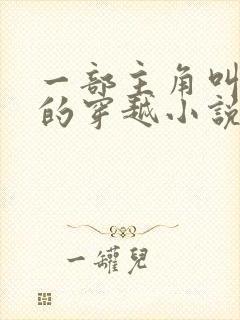 一部主角叫
的穿越小說
一罐兒